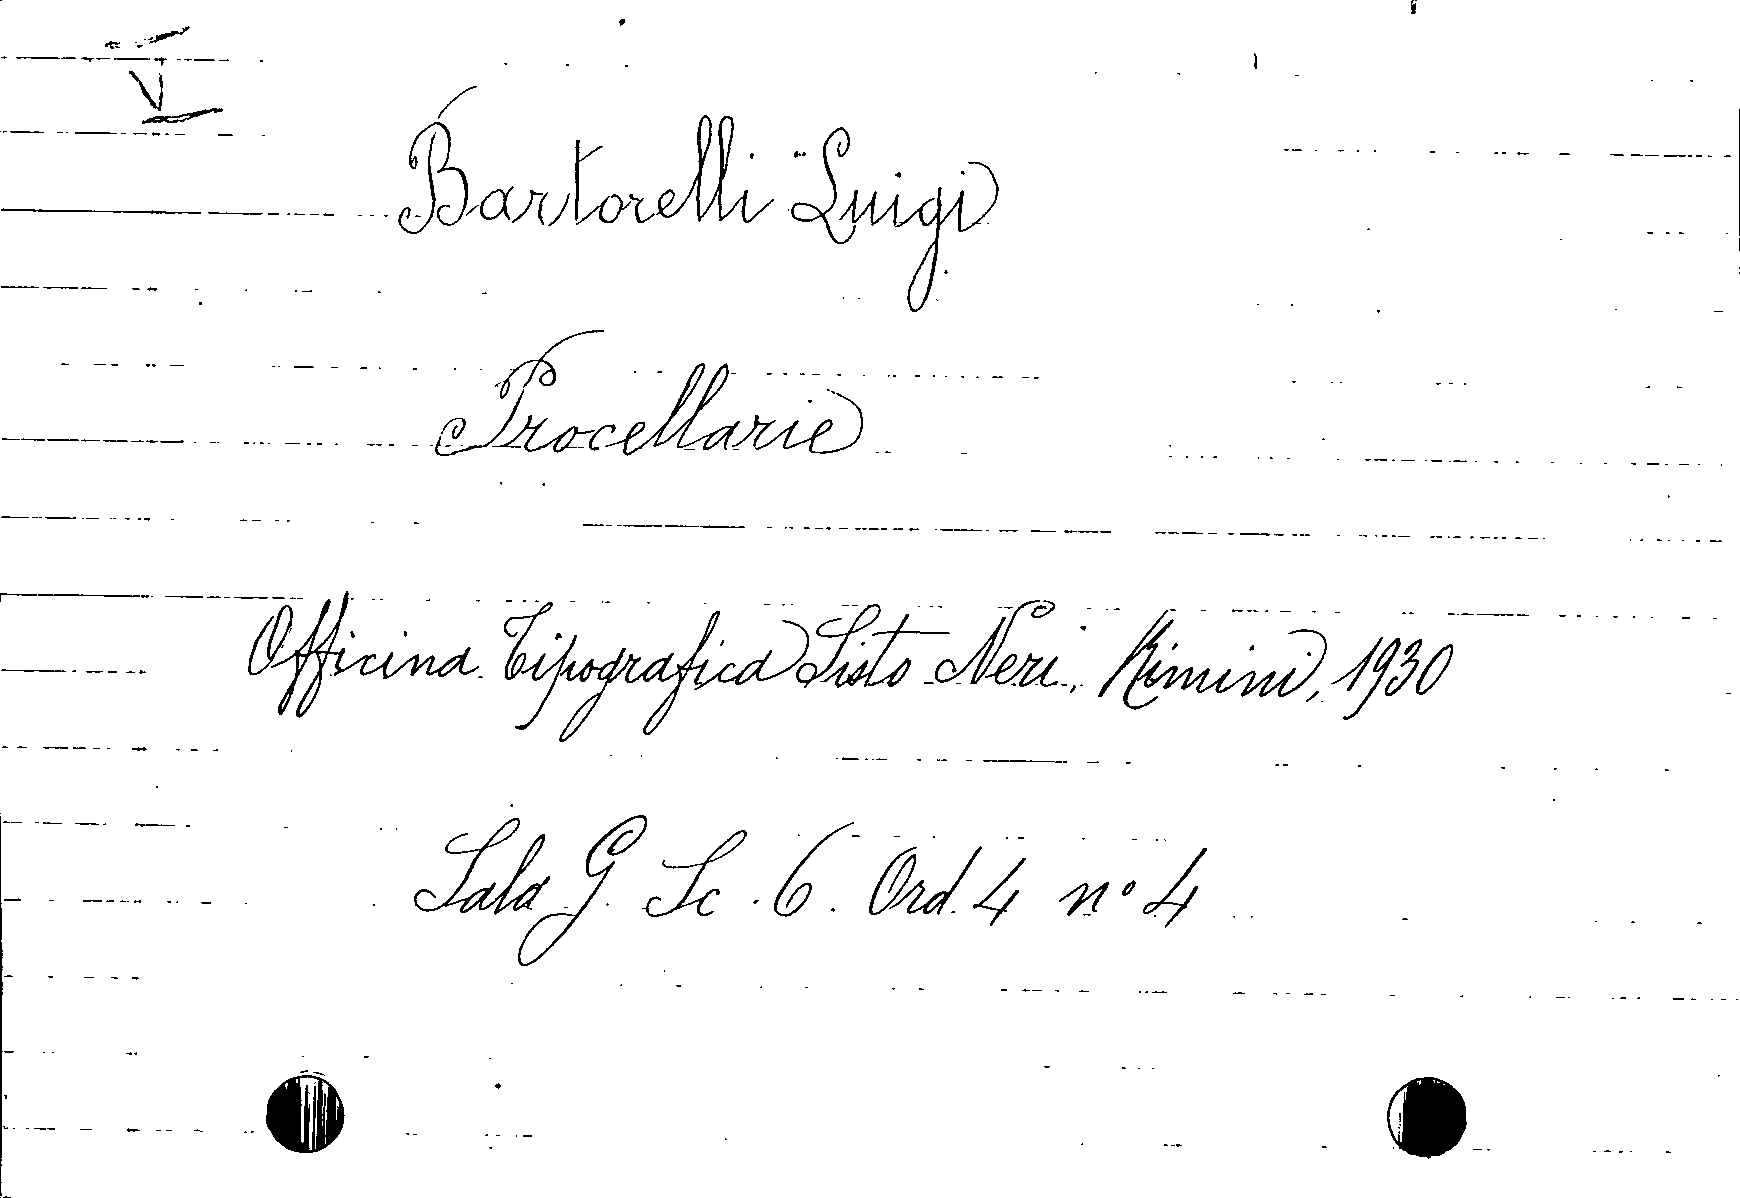 V
Bartorelli Luigi
Procellarie
Officina Tipografica Sisto Neri, Rimini, 1930
Sala G. Sc. 6. Ord. 4 n° 4